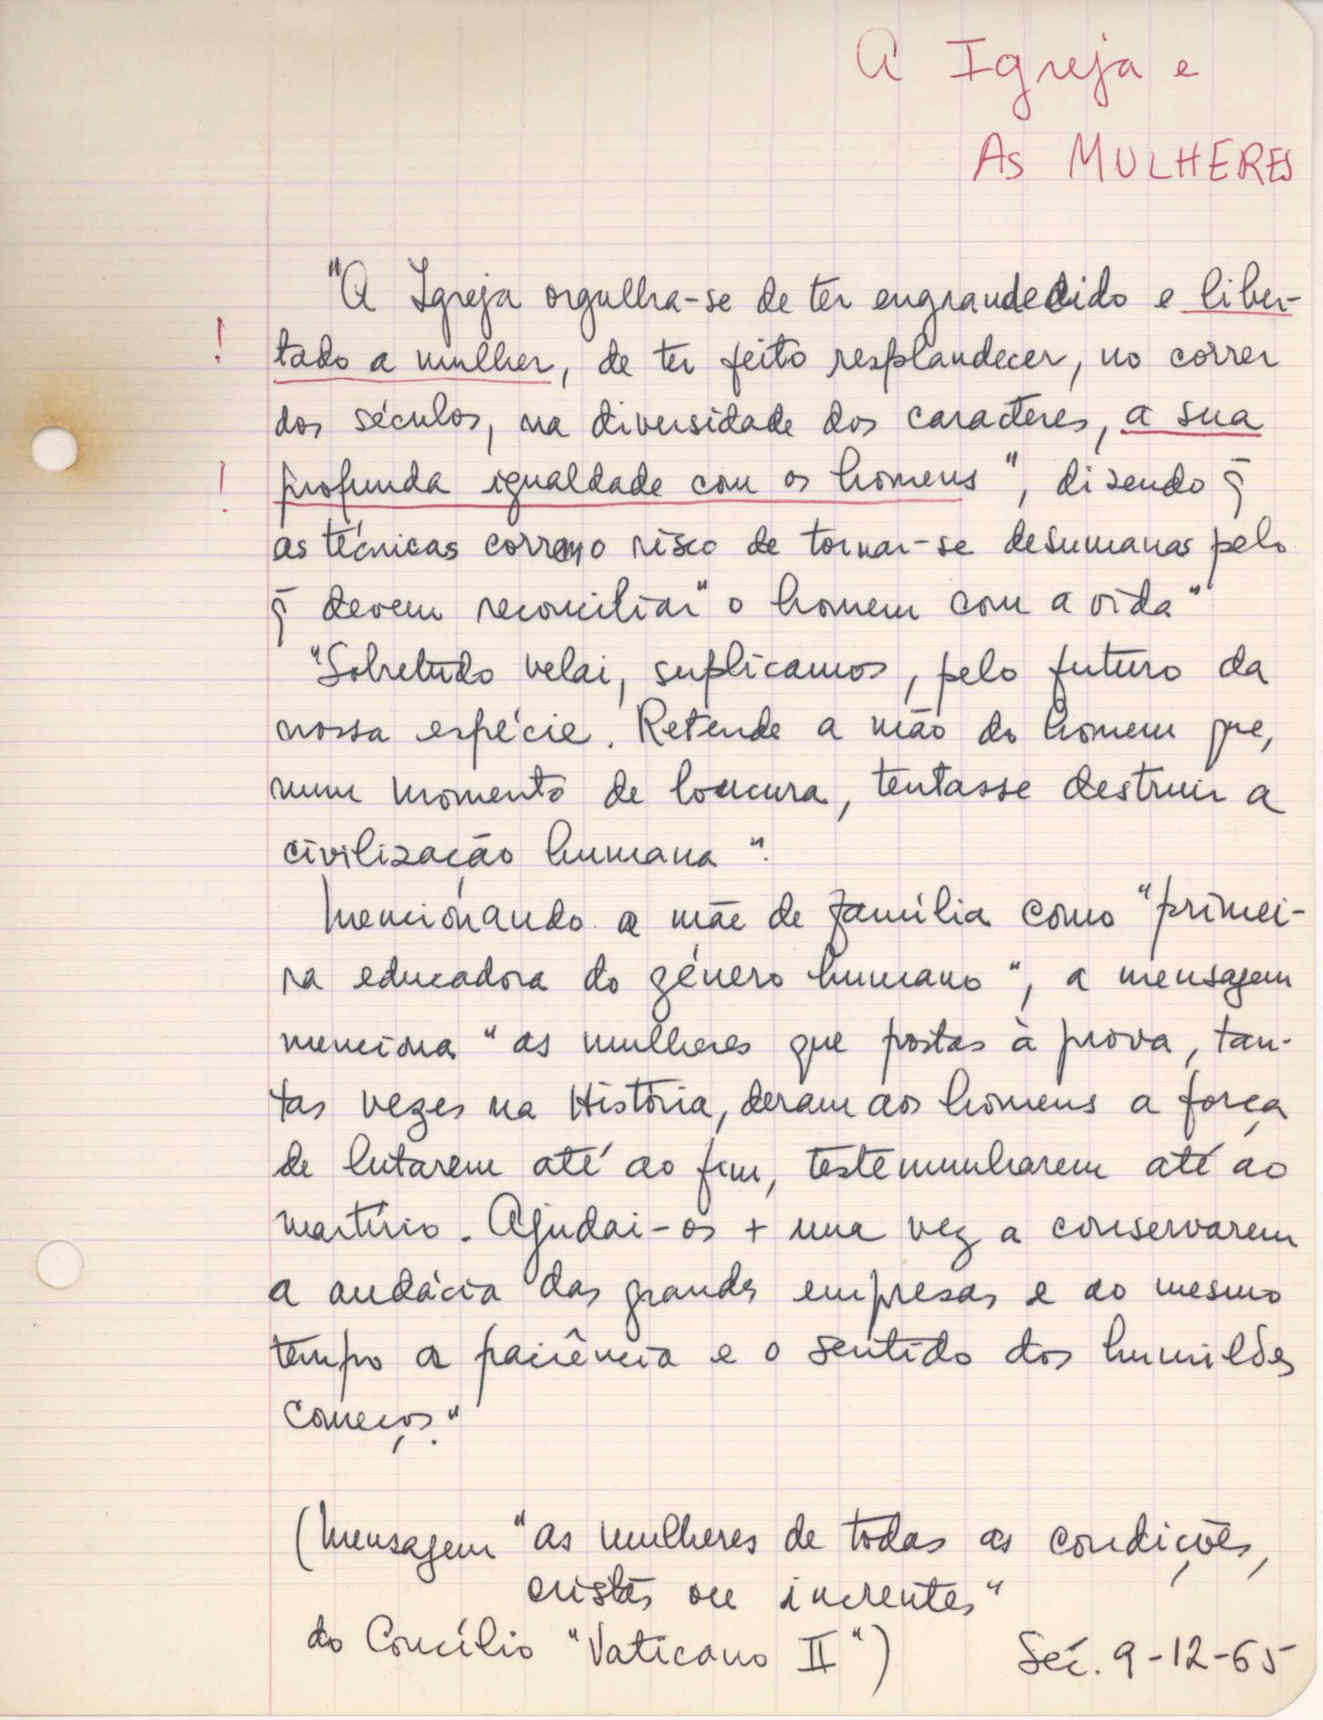 A Igreja e
As MULHERES
"A Igreja orgulha-se de ter engrandecido e liber-
! tado a mulher, de ter feito resplandecer, no correr
dos séculos, na diversidade dos caracteres, a sua
! profunda igualdade com os homens", dizendo q̄
as técnicas correm o risco de tornar-se desumanas pelo
q̄ devem reconciliar "o homem com a vida"
"Sobretudo velai, suplicamos, pelo futuro da
nossa espécie. Retende a mão do homem que,
num momento de loucura, tentasse destruir a
civilização humana".
Mencionando a mãe de família como "primei-
ra educadora do género humano", a mensagem
menciona "as mulheres que postas à prova, tan-
tas vezes na História, deram aos homens a força
de lutarem até ao fim, testemunharem até ao
martírio. Ajudai-os + uma vez a conservarem
a audácia das grandes empresas e ao mesmo
tempo a paciência e o sentido dos humildes
começos."
(Mensagem "as mulheres de todas as condições,
cristãs ou increntes"
do Concílio "Vaticano II")
Séc. 9-12-65